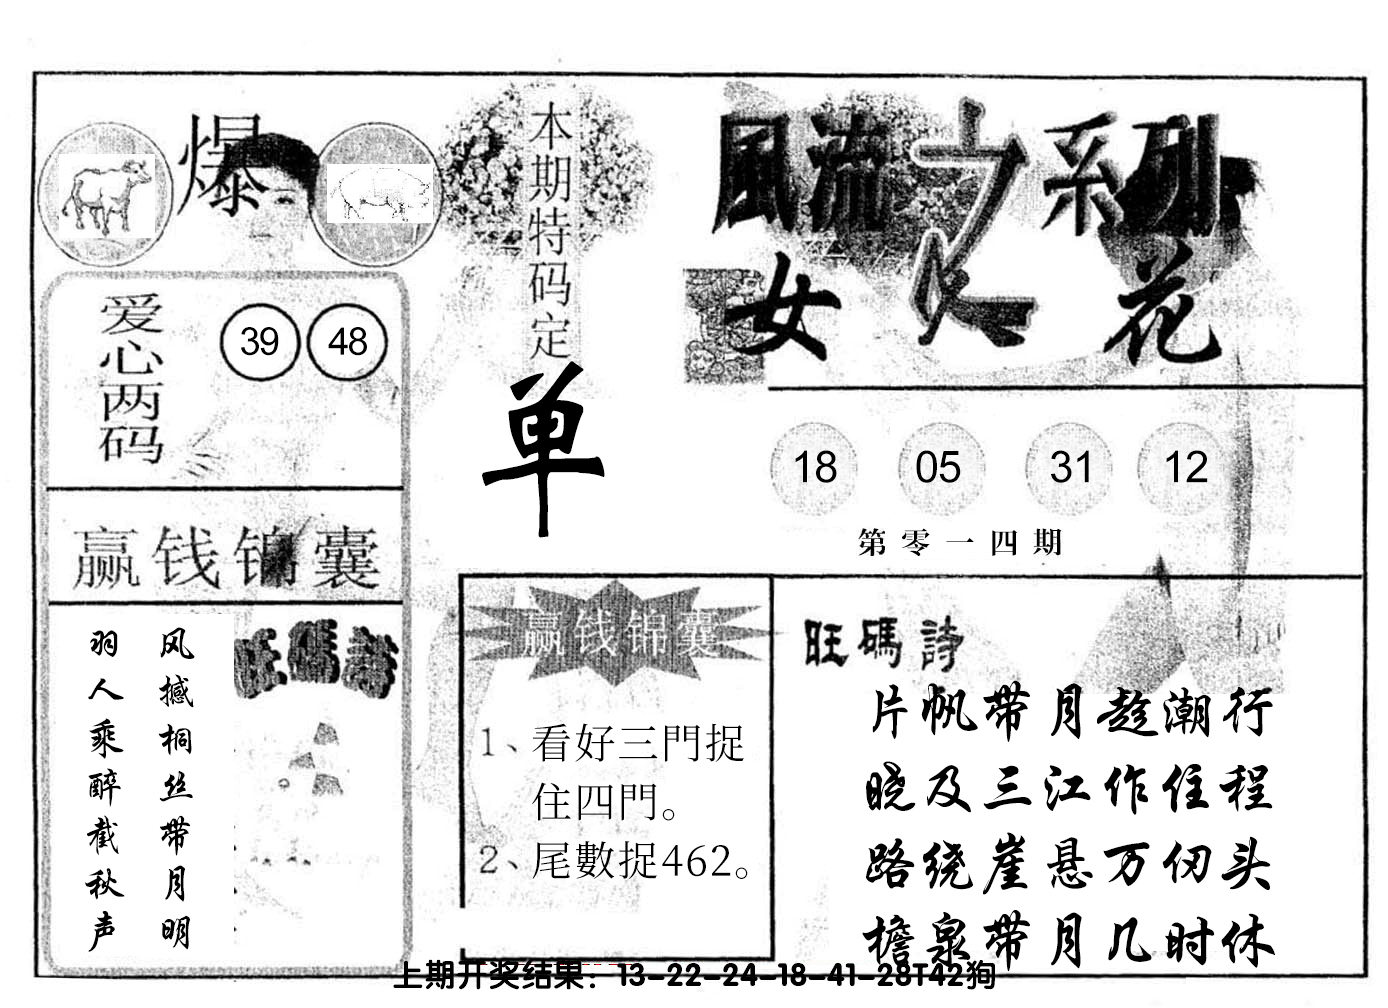 爆
本期特码定
单
風流之系列
女人花
爱心两码
39 48
18 05 31 12
第零一四期
赢钱锦囊
旺碼詩
风撼桐丝带月明
羽人乘醉截秋声
赢钱锦囊
1、看好三門捉
住四門。
2、尾數捉462。
旺碼詩
片帆带月趁潮行
晓及三江作住程
路绕崖悬万仞头
檐泉带月几时休
上期开奖结果：13-22-24-18-41-28T42狗